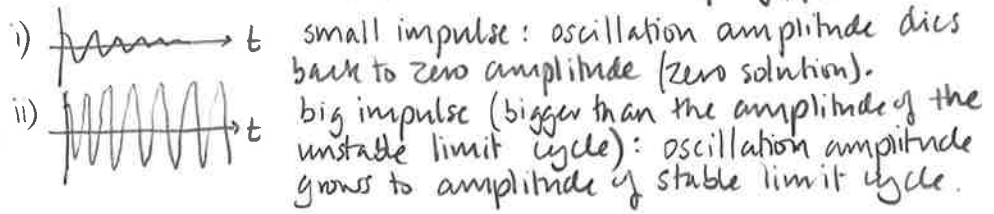 i) t small impulse : oscillation amplitude dies
back to zero amplitude (zero solution).
ii) t big impulse (bigger than the amplitude of the
unstable limit cycle) : oscillation amplitude
grows to amplitude of stable limit cycle.